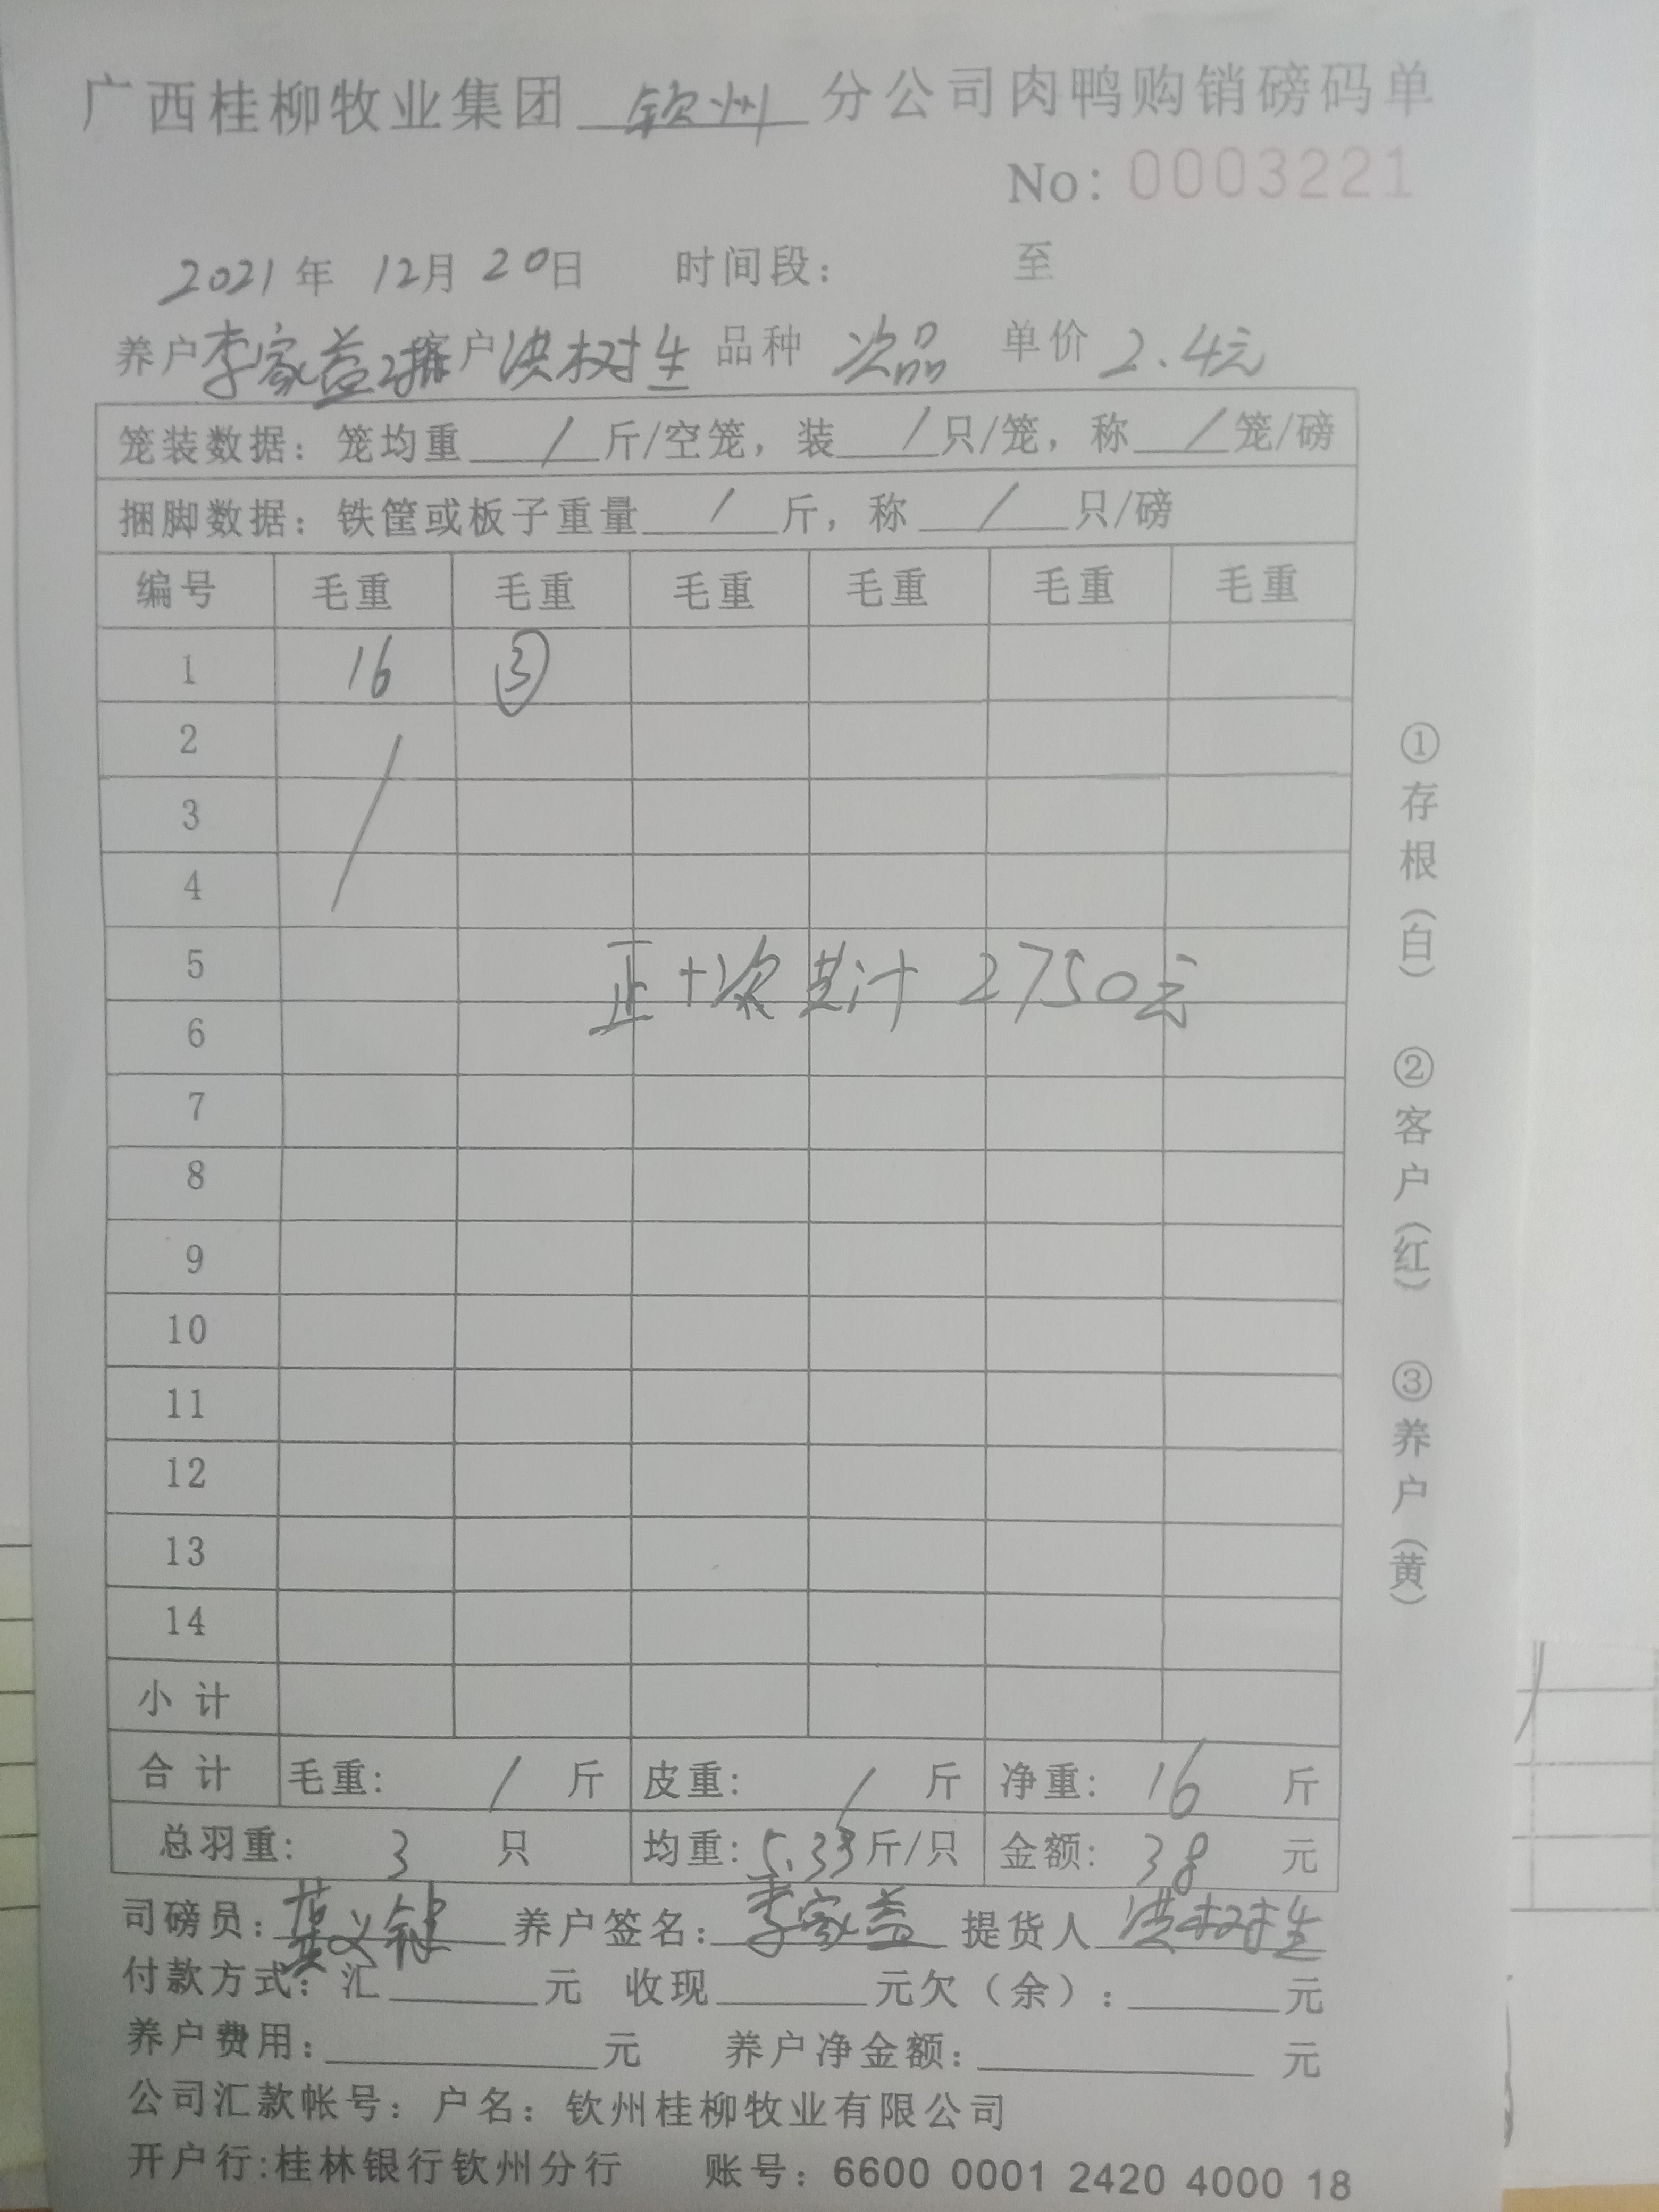 广西桂柳牧业集团 钦州 分公司肉鸭购销磅码单
No: 0003221
2021年 12月 20日 时间段: 至
养户 李家益2批 客户 洪树生 品种 次品 单价 2.4元
笼装数据: 笼均重 / 斤/空笼, 装 / 只/笼, 称 / 笼/磅
捆脚数据: 铁筐或板子重量 / 斤, 称 / 只/磅
编号 毛重 毛重 毛重 毛重 毛重 毛重
1 16 ③
2
3
4
5
正+次 共计 2750元
6
7
8
9
10
11
12
13
14
小计
合计 毛重: / 斤 皮重: / 斤 净重: 16 斤
总羽重: 3 只 均重: 5.33斤/只 金额: 38 元
司磅员: 养户签名: 李家益 提货人 洪树生
付款方式: 汇______元 收现______元欠(余):______元
养户费用:______元 养户净金额:______元
公司汇款帐号: 户名: 钦州桂柳牧业有限公司
开户行:桂林银行钦州分行 账号: 6600 0001 2420 4000 18
①存根(白) ②客户(红) ③养户(黄)